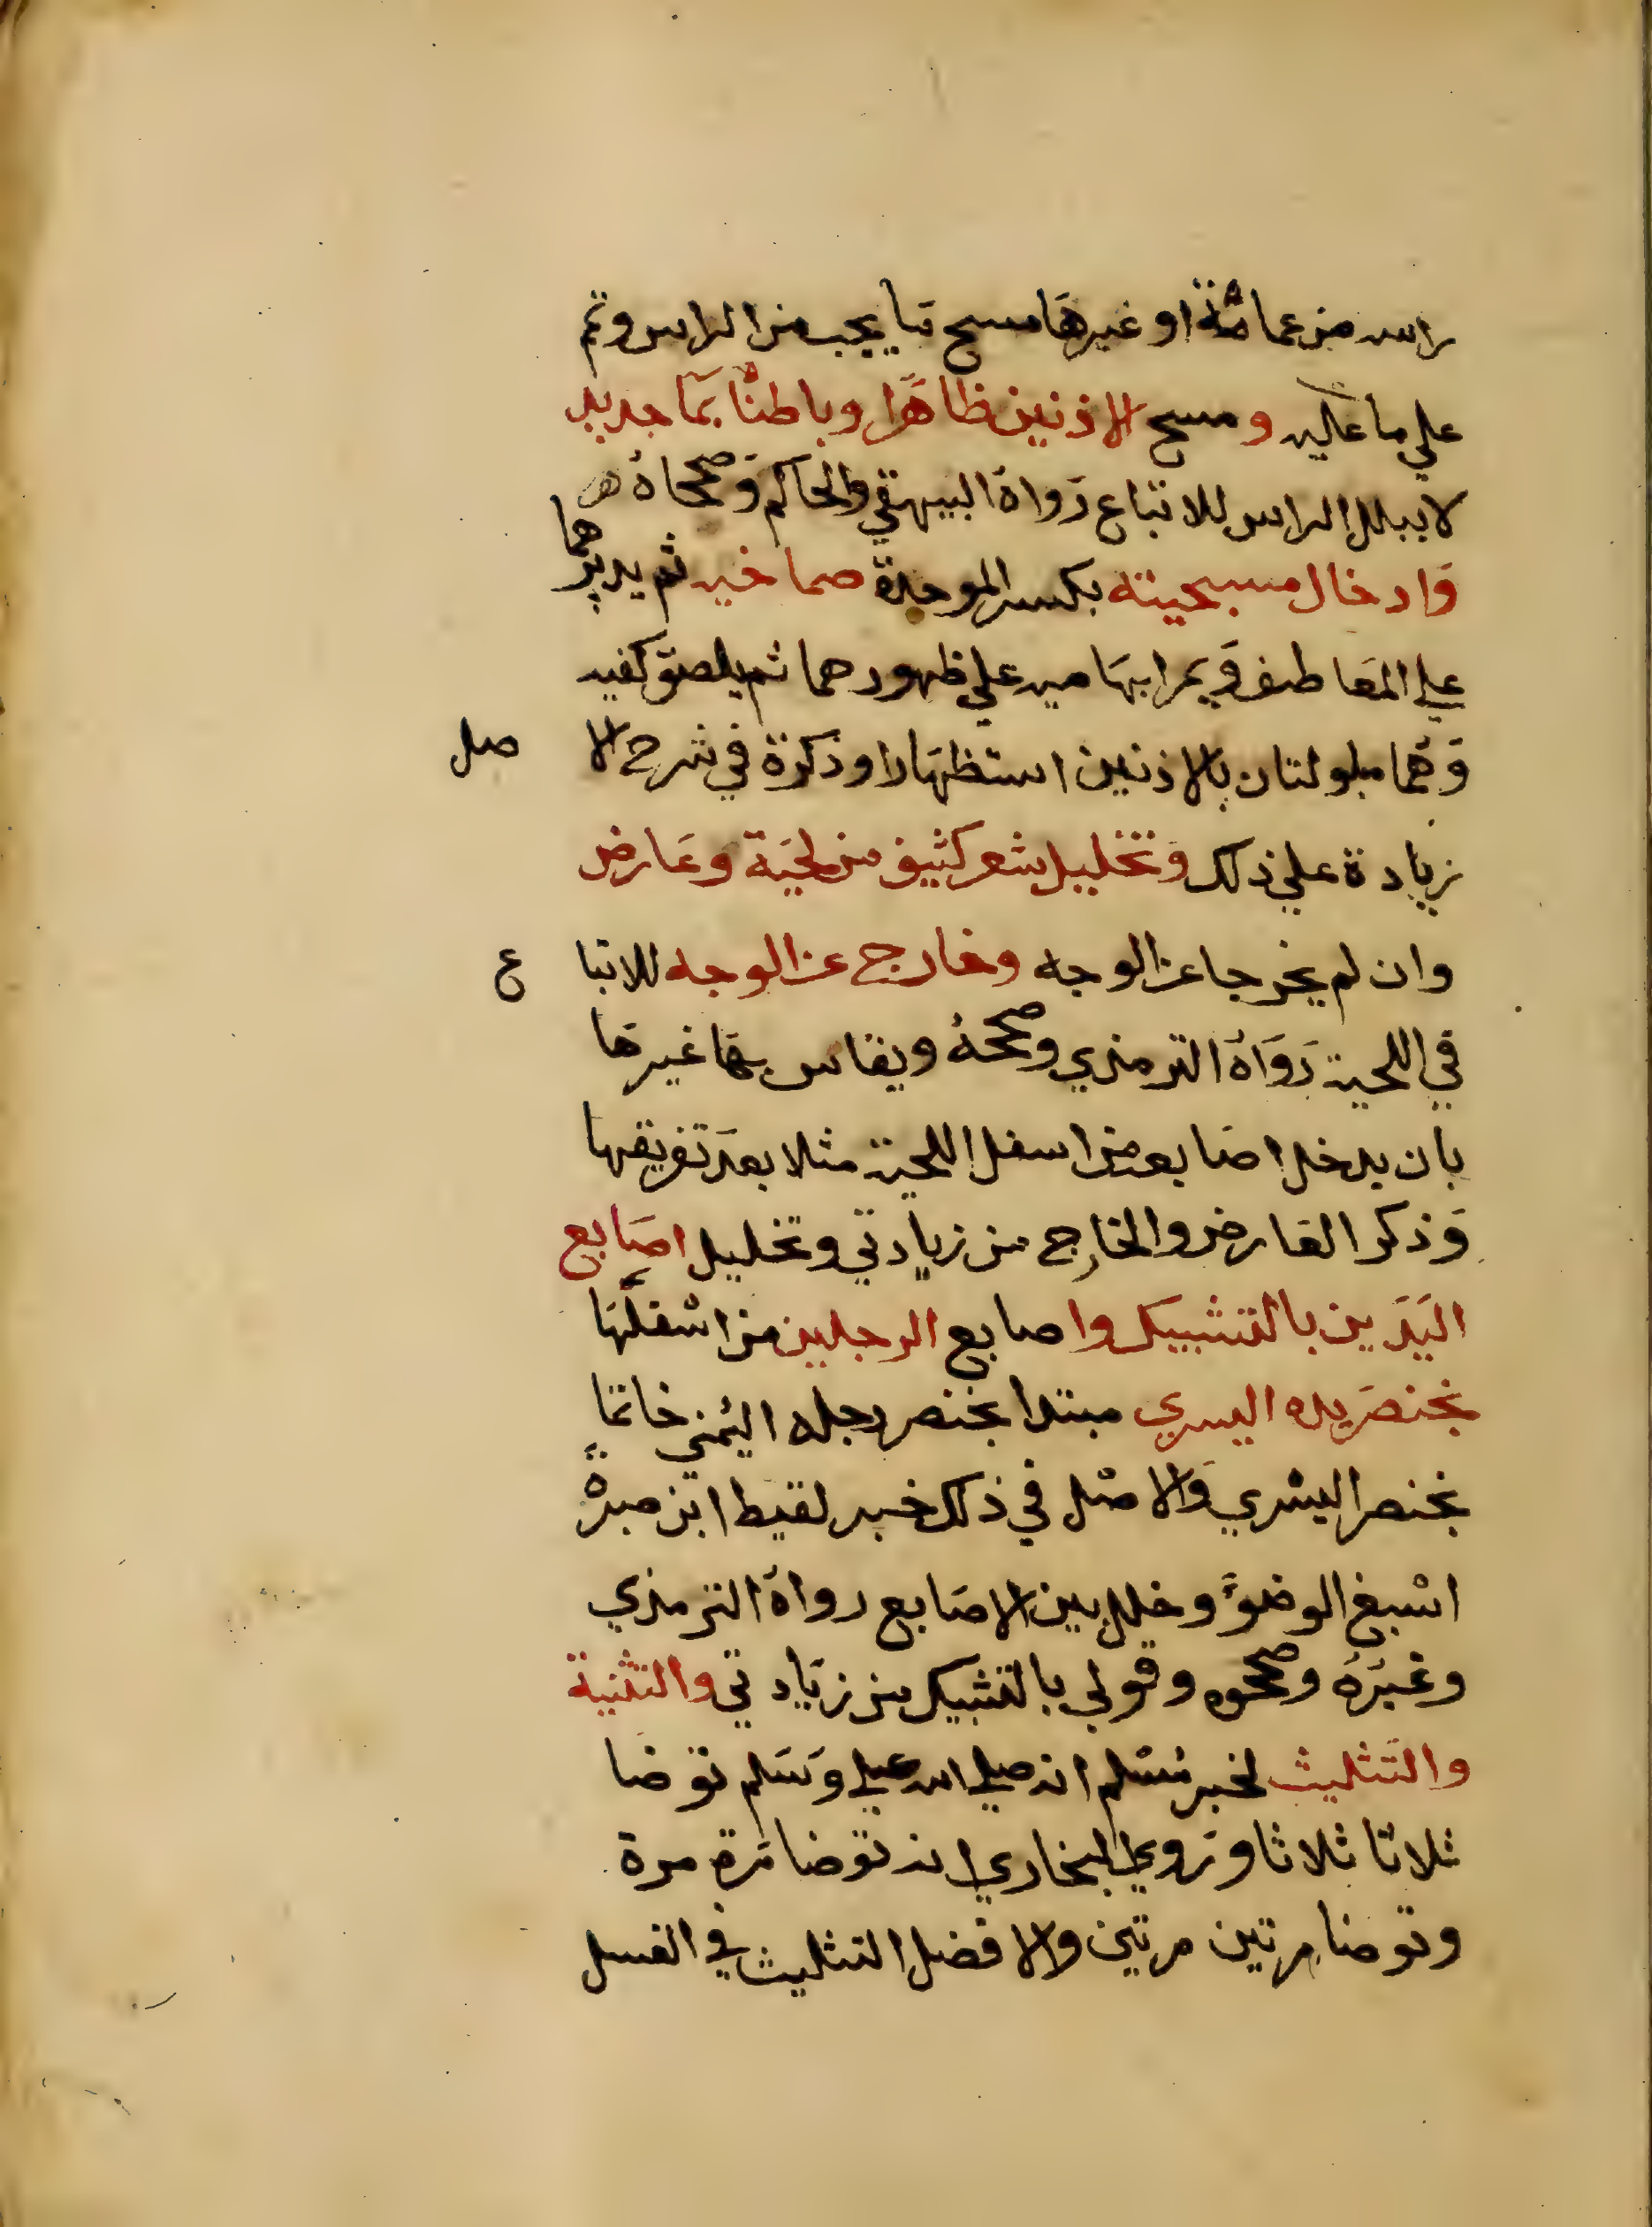 راسه من عمامة او غيرها مسح ما يجب من الراس وتمم
علي ما عليه ومسح الاذنين ظاهرا وباطنا بما جديد
لا ببلل الراس للاتباع رواه البيهقي والحاكم وصححاه
وادخال مسبحيته بكسر الموحدة صماخيه ثم يديرهما
علي المعاطف ويمر ابهاميه علي ظهورهما ثم يلصق كفيه
وهما مبلولتان بالاذنين استظهارا وذكرة في شرح الاصل
زيادة علي ذلك وتخليل شعر كثيف من لحية وعارض
وان لم يخرجا عن الوجه وخارج عن الوجه للاتباع
في اللحية رواه الترمذي وصححه ويقاس بها غيرها
بان يدخل اصابعه من اسفل اللحية مثلا بعد تفريقها
وذكر العارض والخارج من زيادتي وتخليل اصابع
اليدين بالتشبيك واصابع الرجلين من اسفلها
بخنصر يده اليسري مبتدا بخنصر رجله اليمني خاتما
بخنصر اليسري والاصل في ذلك خبر لقيط ابن صبرة
اسبغ الوضؤ وخلل بين الاصابع رواه الترمذي
وغيره وصححوه وقولي بالتشبيك من زيادتي والتثنية
والتثليث لخبر مسلم انه صلي الله عليه وسلم توضا
ثلاثا ثلاثا وروي البخاري انه توضا مرة مرة
وتوضا مرتين مرتين والافضل التثليث في الغسل